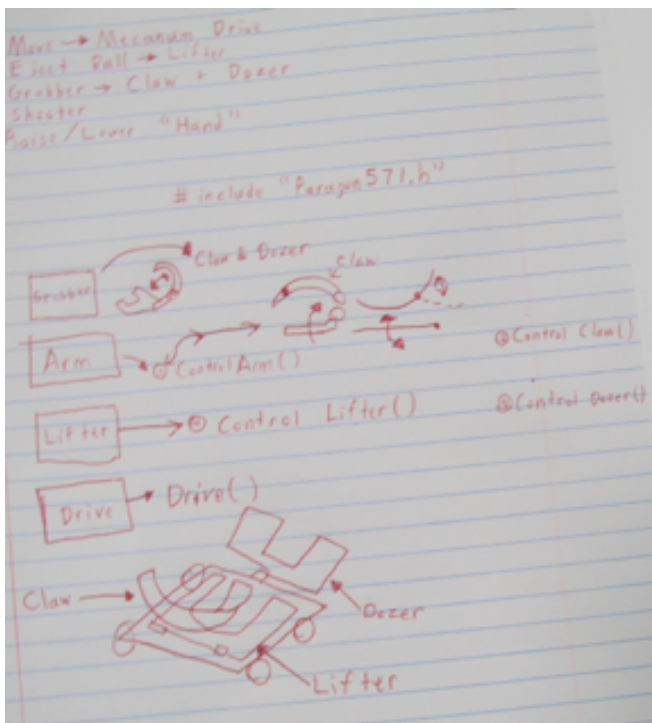 Move → Mecanum Drive
Eject Ball → Lifter
Grabber → Claw + Dozer
Shooter
Raise/Lower "Hand"
# include "Paragon571.h"
Claw & Dozer
Claw
Grabber
Control Claw()
Arm
Control Arm()
Control Dozer()
Lifter
Control Lifter()
Drive
Drive()
Claw
Dozer
Lifter